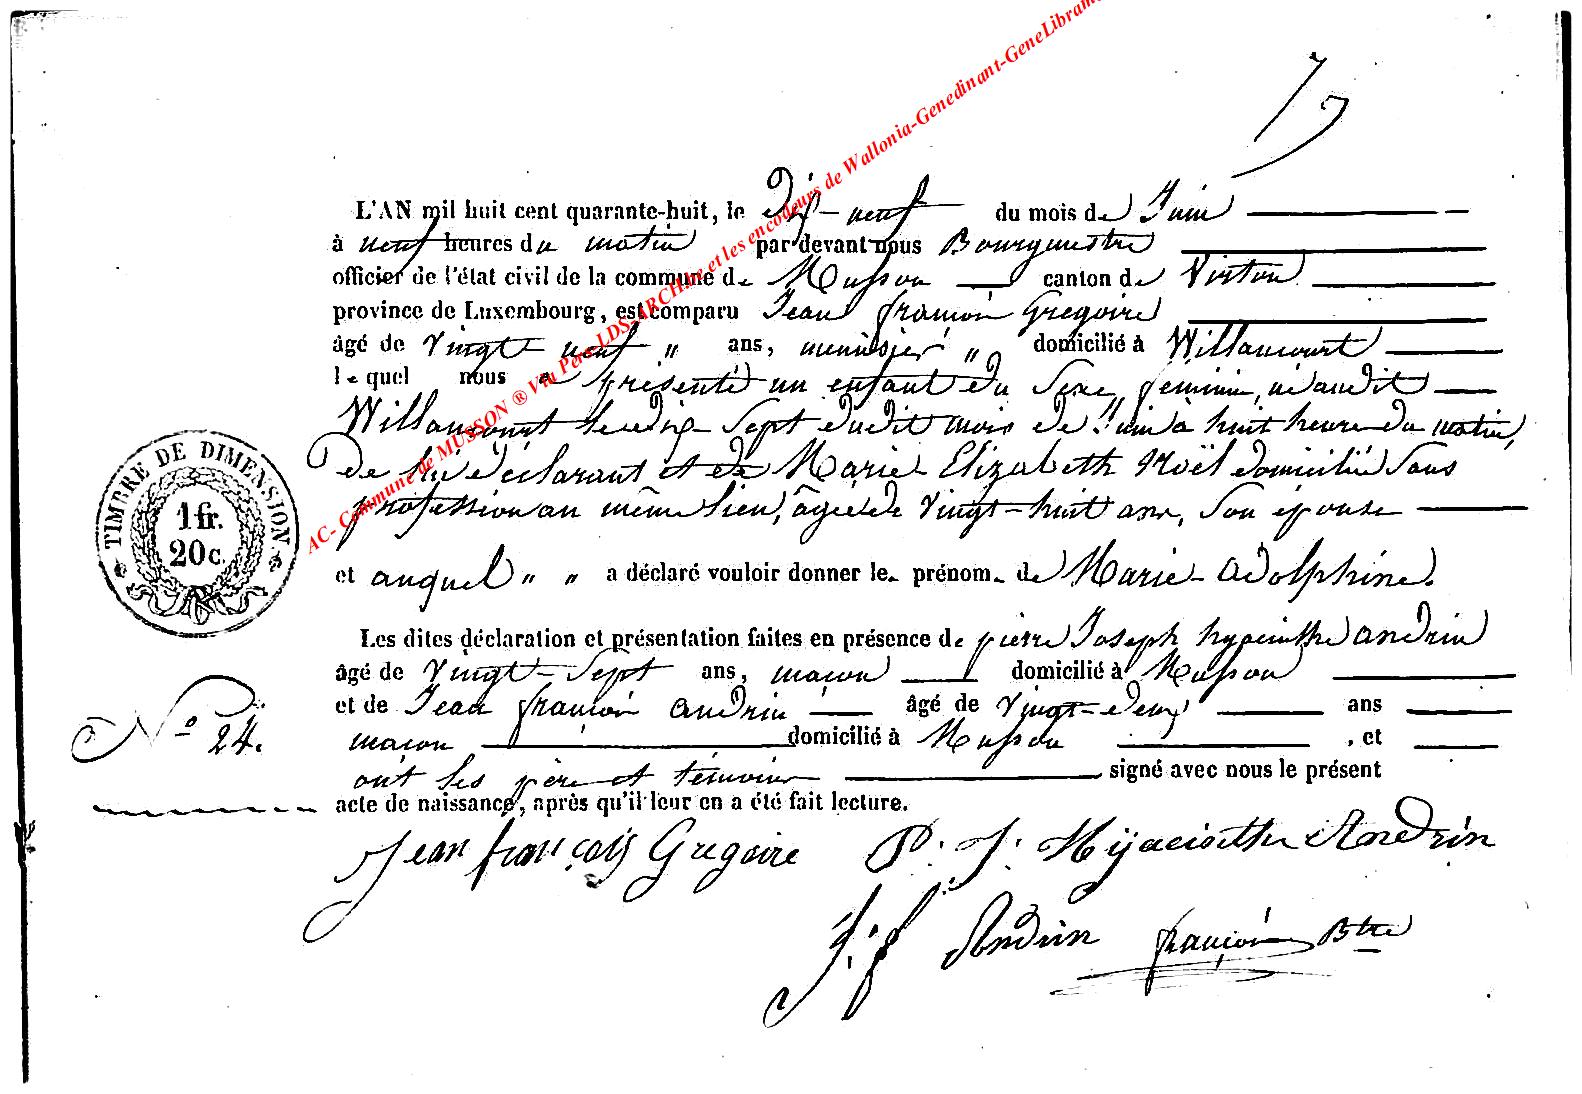 L'AN mil huit cent quarante-huit, le Dix-neuf du mois de Juin
à neuf heures du matin par devant nous Bourgmestre
officier de l'état civil de la commune de Musson canton de Virton
province de Luxembourg, est comparu Jean françois Gregoire
âgé de vingt neuf " ans, menuisier " domicilié à Willancourt
lequel nous a présenté un enfant du Sexe féminin, né audit
Willancourt le dix-Sept dudit mois de Juin à huit heure du matin,
de lui déclarant et de Marie Elizabeth Noël domiciliée Sans
profession au même lieu, âgée de vingt-huit ans, Son épouse
et auquel " " a déclaré vouloir donner le prénom de Marie-Adolphine.
Les dites déclaration et présentation faites en présence de pierre Joseph hyacinthe andrin
âgé de vingt-Sept ans, maçon domicilié à Musson
et de Jean françois andrin âgé de vingt-deux ans
maçon domicilié à Musson , et
ont les père et témoins signé avec nous le présent
acte de naissance, après qu'il leur en a été fait lecture.
Jean françois Gregoire P. J. Hyacinthe Andrin
J. f Andrin françois Btre
TIMBRE DE DIMENSION
1 fr.
20 c.
No 24.
AC- Commune de MUSSON ® Via Pere-LDS-ARCH.be et les encodeurs de Wallonia-Genedinant-GeneLibram